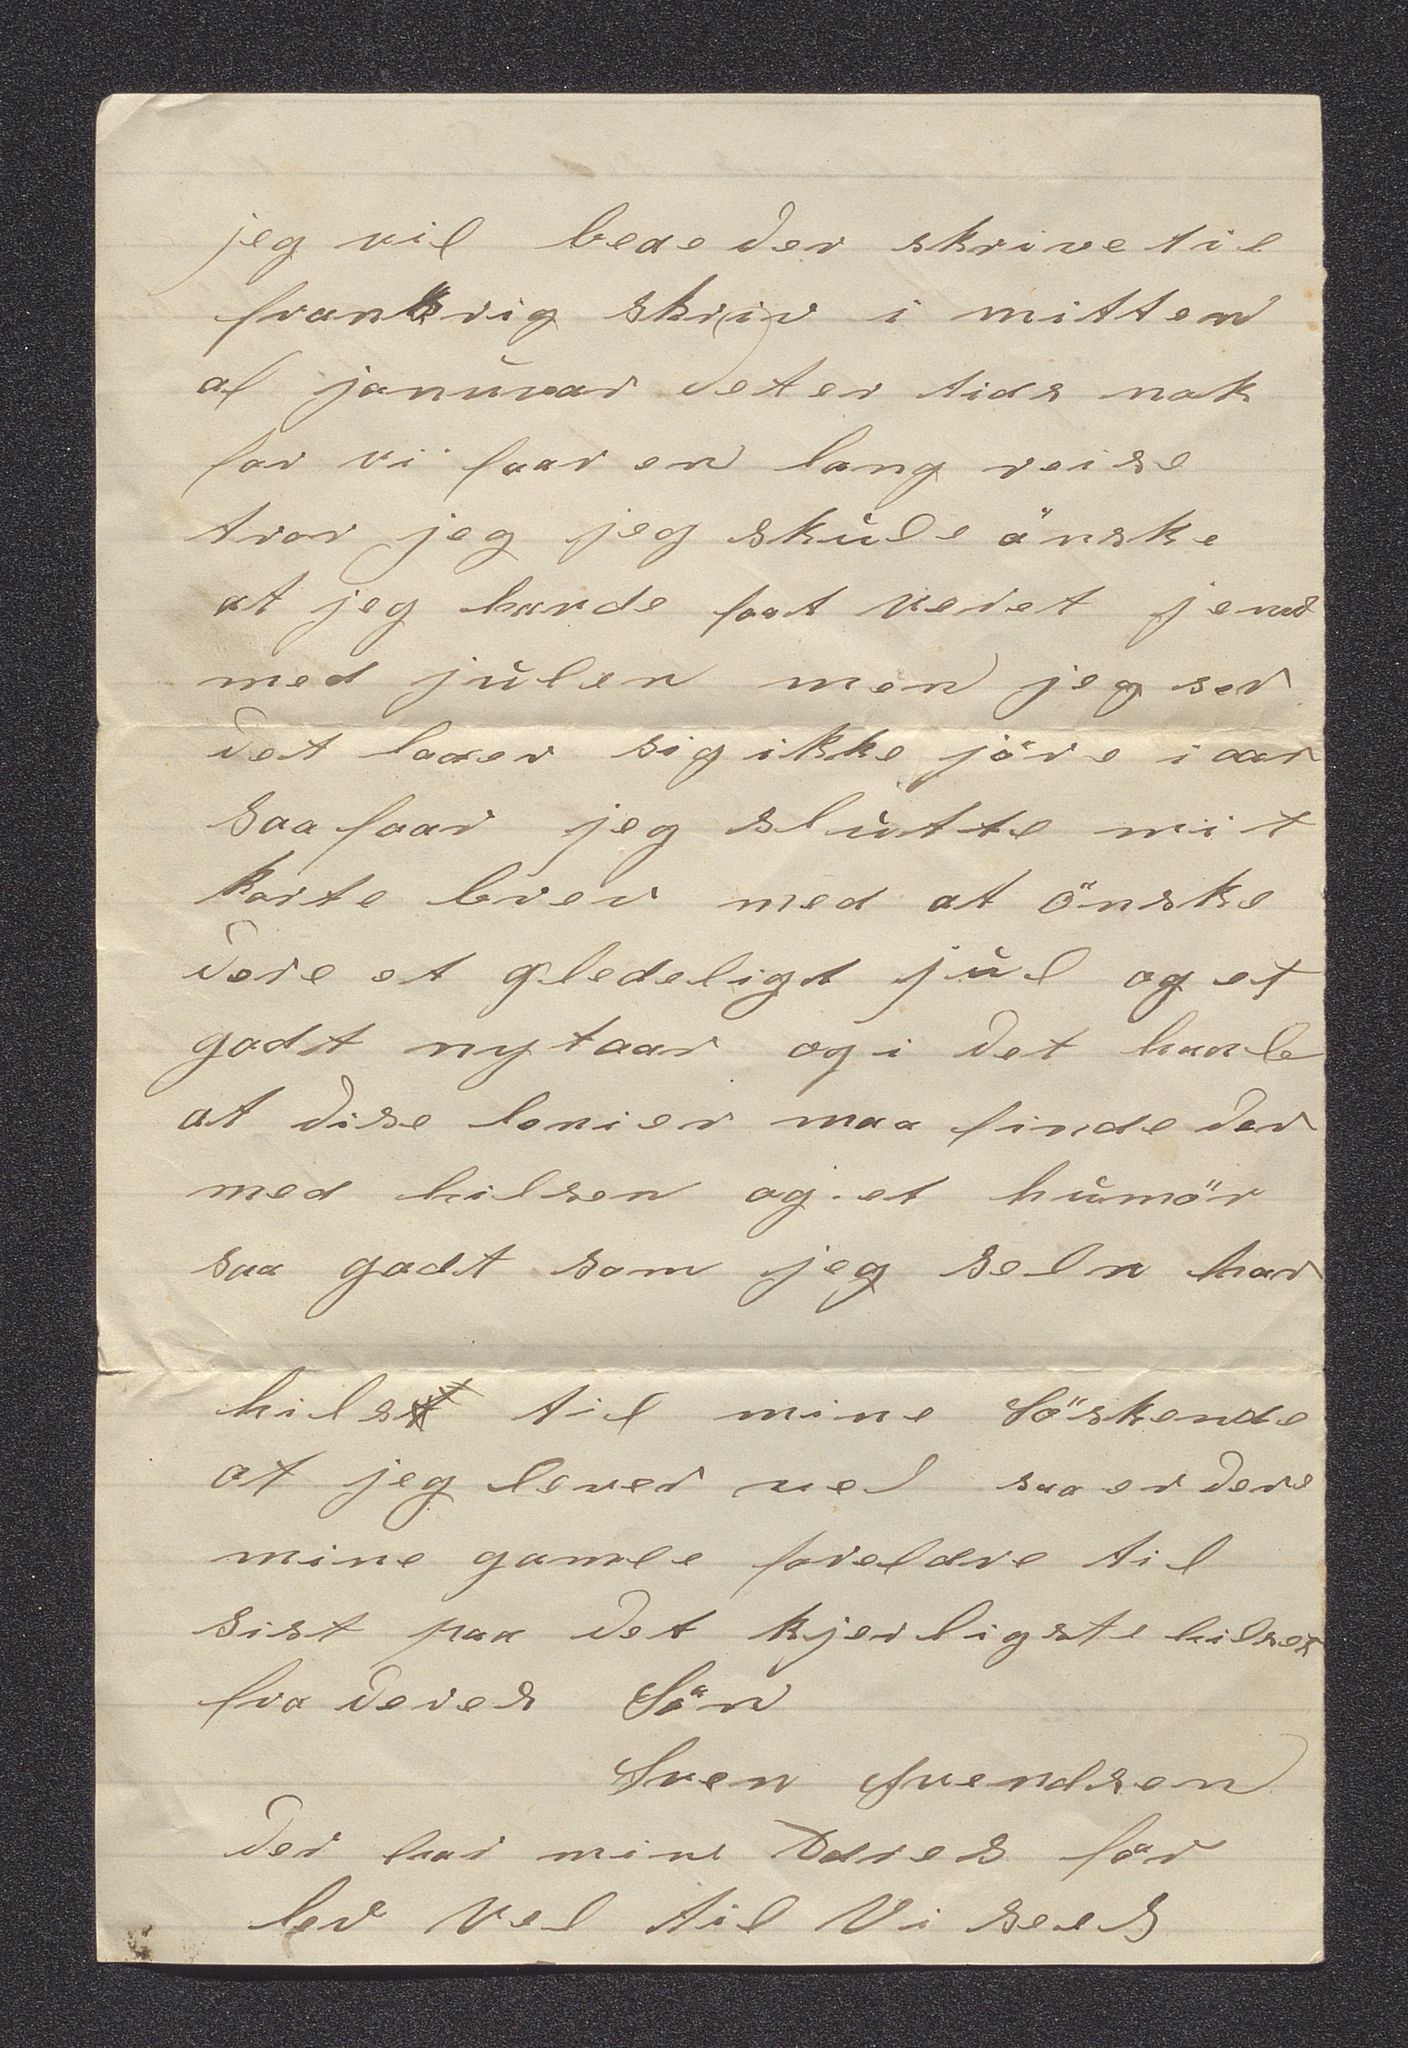 jeg vil bede der skrive til
frankrig skriv i mitten
af januvar det er tids nok
for vi faar en lang reise
tror jeg jeg skule önske
at jeg havde faat veret jem
med julen men jeg ser
det laaer sig ikke jöre i aar
saa faar jeg slutte mit
korte brev med at önske
dere et gledeligt jul og et
godt nytaar og i det haab
at dise linier maa finde der
med hilsen og et humör
saa godt som jeg selv har
hilst til mine Söskende
at jeg lever vel saa er dere
mine gamle foreldre til
sist paa det kjerligste hilset
fra deres Sön
Sven Svendsen
der har mine Adres för
lev vel til Vi sees